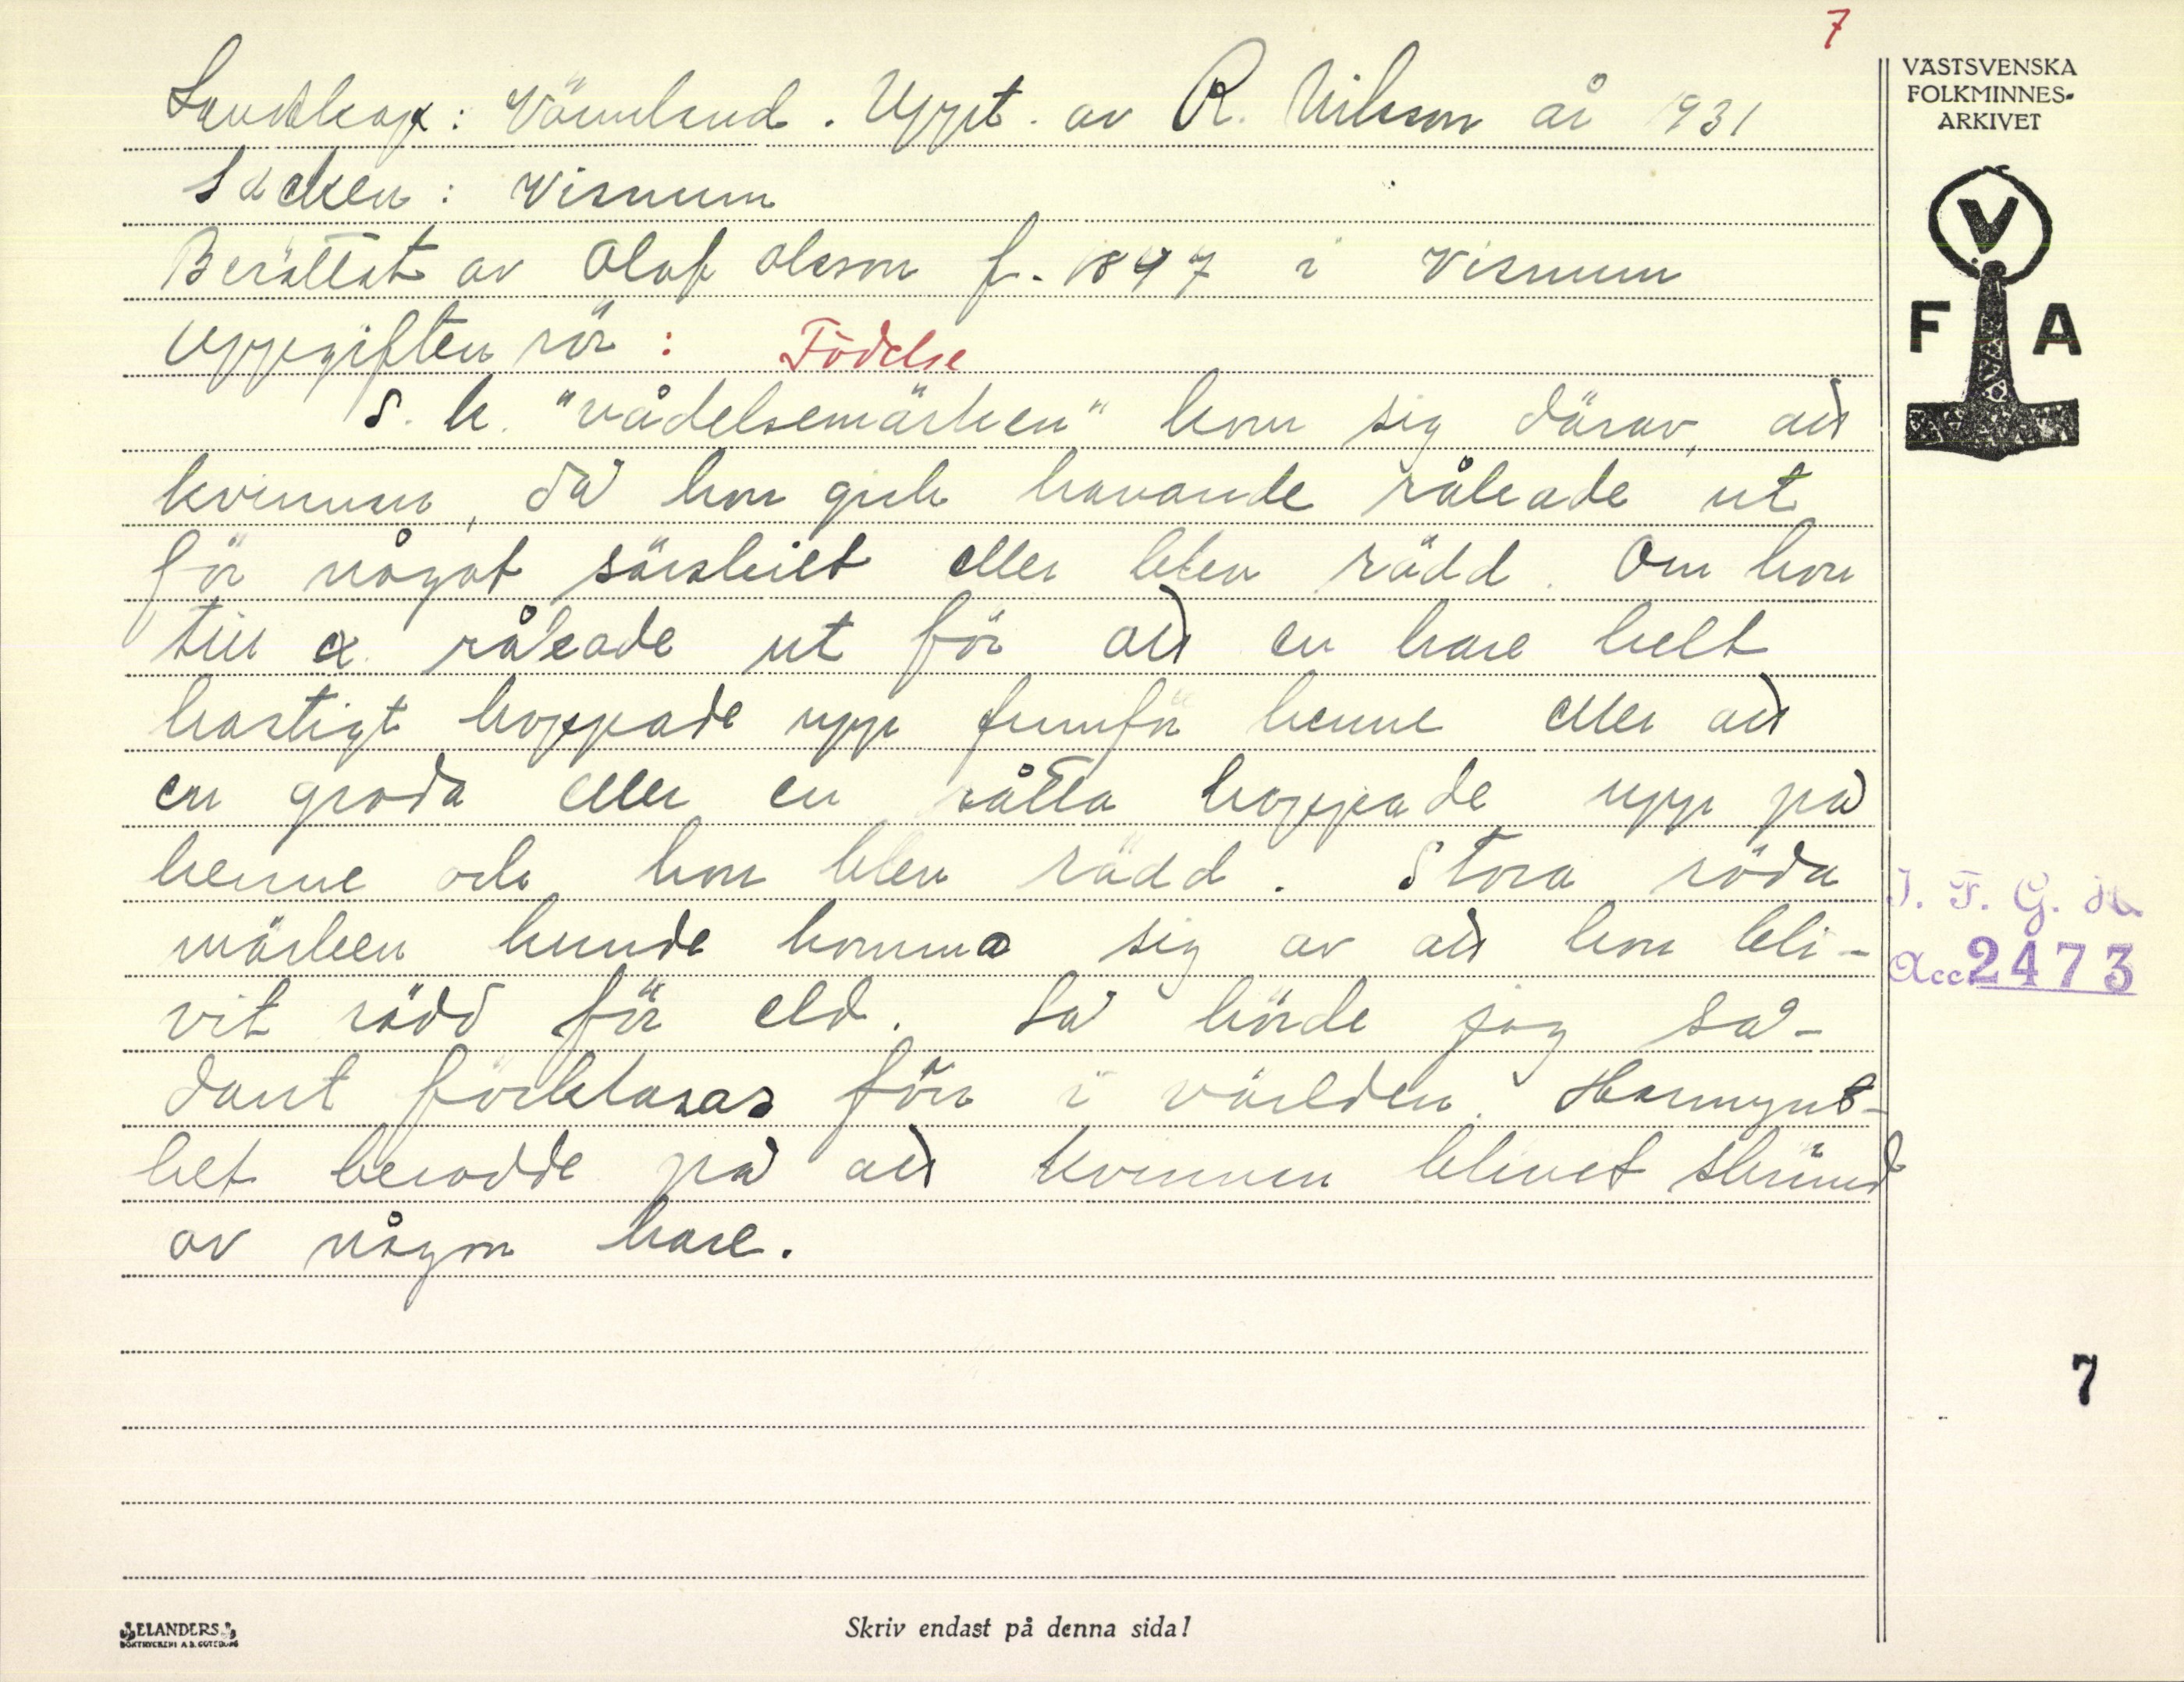 7
Landskap: Värmland. Uppt. av R. Nilsson år 1931
Socken: Visnum
Berättat av Olof Olsson f. 1847 i Visnum
Uppgiften rör: Födelse
S. k. "vådelsemärken" kom sig därav, att
kvinnan, då hon gick havande råkade ut
för något särskilt eller blev rädd. Om hon
till ex. råkade ut för att en hare helt
hastigt hoppade upp framför henne eller att
en groda eller en råtta hoppade upp på
henne och hon blev rädd. Stora röda
märken kunde komma sig av att hon bli-
vit rädd för eld. Så hörde jag så-
dant förklaras förr i världen. Harmynt-
het berodde på att kvinnan blivit skrämd
av någon hare.
VÄSTSVENSKA
FOLKMINNES-
ARKIVET
V
F A
I. F. G. H.
Acc. 2473
7
ELANDERS
BOKTRYCKERI A.B. GÖTEBORG
Skriv endast på denna sida!